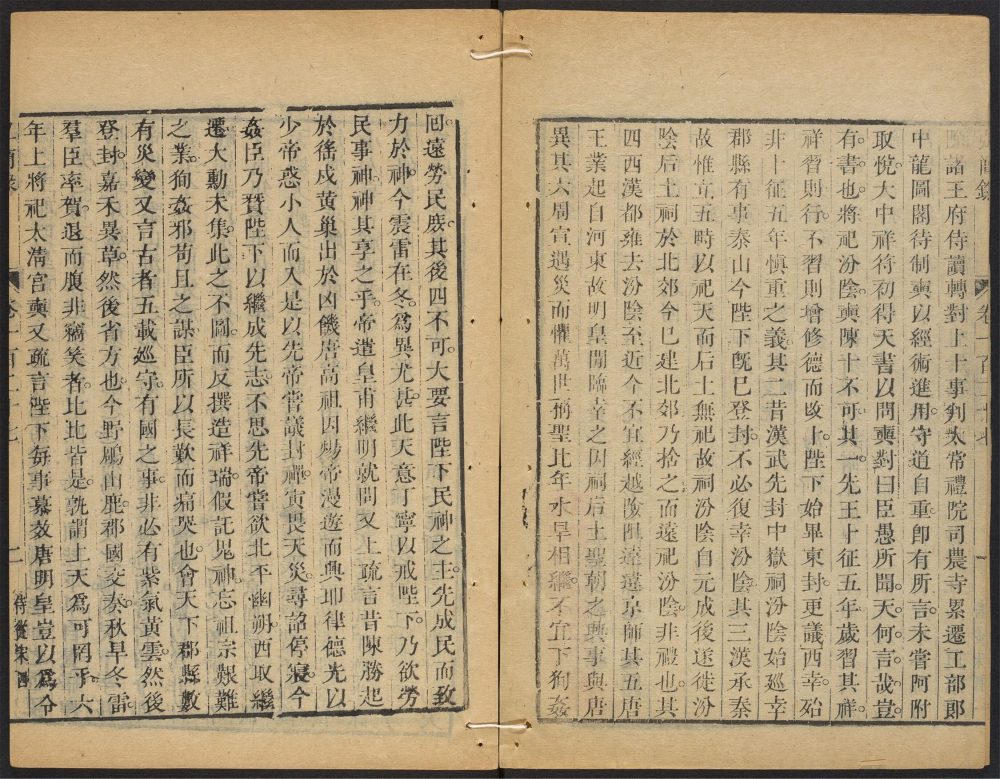 諸王府侍讀轉對上十事判太常禮院司農寺累遷工部郎
中龍圖閣待制奭以經術進用守道自重卽有所言未嘗阿附
取悅大中祥符初得天書以問奭對曰臣愚所聞天何言哉豈
有書也將祀汾陰奭陳十不可其一先王卜征五年歲習其祥
祥習則行不習則增修德而改卜陛下始畢東封更議西幸殆
非卜征五年愼重之義其二昔漢武先封中嶽祠汾陰始巡幸
郡縣有事泰山今陛下旣已登封不必復幸汾陰其三漢承秦
故惟立五畤以祀天而后土無祀故祠汾陰自元成後遂徙汾
陰后土祠於北郊今已建北郊乃捨之而遠祀汾陰非禮也其
四西漢都雍去汾陰至近今不宜經越險阻遠遠京師其五唐
王業起自河東故明皇開降幸之因祠后土聖朝之興事與唐
異其六周宣遇災而懼萬世稱聖比年水旱相繼不宜下狥姦
回遠勞民庶其後四不可大要言陛下民神之主先成民而致
力於神今震雷在冬爲異尤甚此天意丁寧以戒陛下乃欲勞
民事神神其享之乎帝遣皇甫繼明就問又上疏言昔陳勝起
於徭戍黃巢出於凶饑唐高祖因煬帝漫遊而興耶律德光以
少帝惑小人而入是以先帝嘗議封禪寅畏天災尋詔停寢今
姦臣乃贊陛下以繼成先志不思先帝嘗欲北平幽朔西取繼
遷大勳未集此之不圖而反撰造祥瑞假託鬼神忘祖宗艱難
之業狥姦邪苟且之謀臣所以長歎而痛哭也會天下郡縣數
有災變又言古者五載巡守有國之事非必有紫氣黃雲然後
登封嘉禾異草然後省方也今野鵰山鹿郡國交奏秋旱冬雷
羣臣率賀退而腹非竊笑者比比皆是孰謂上天爲可罔乎六
年上將祀太淸宮奭又疏言陛下每事慕效唐明皇豈以爲令
卷一百二十七
二
侍從宋四